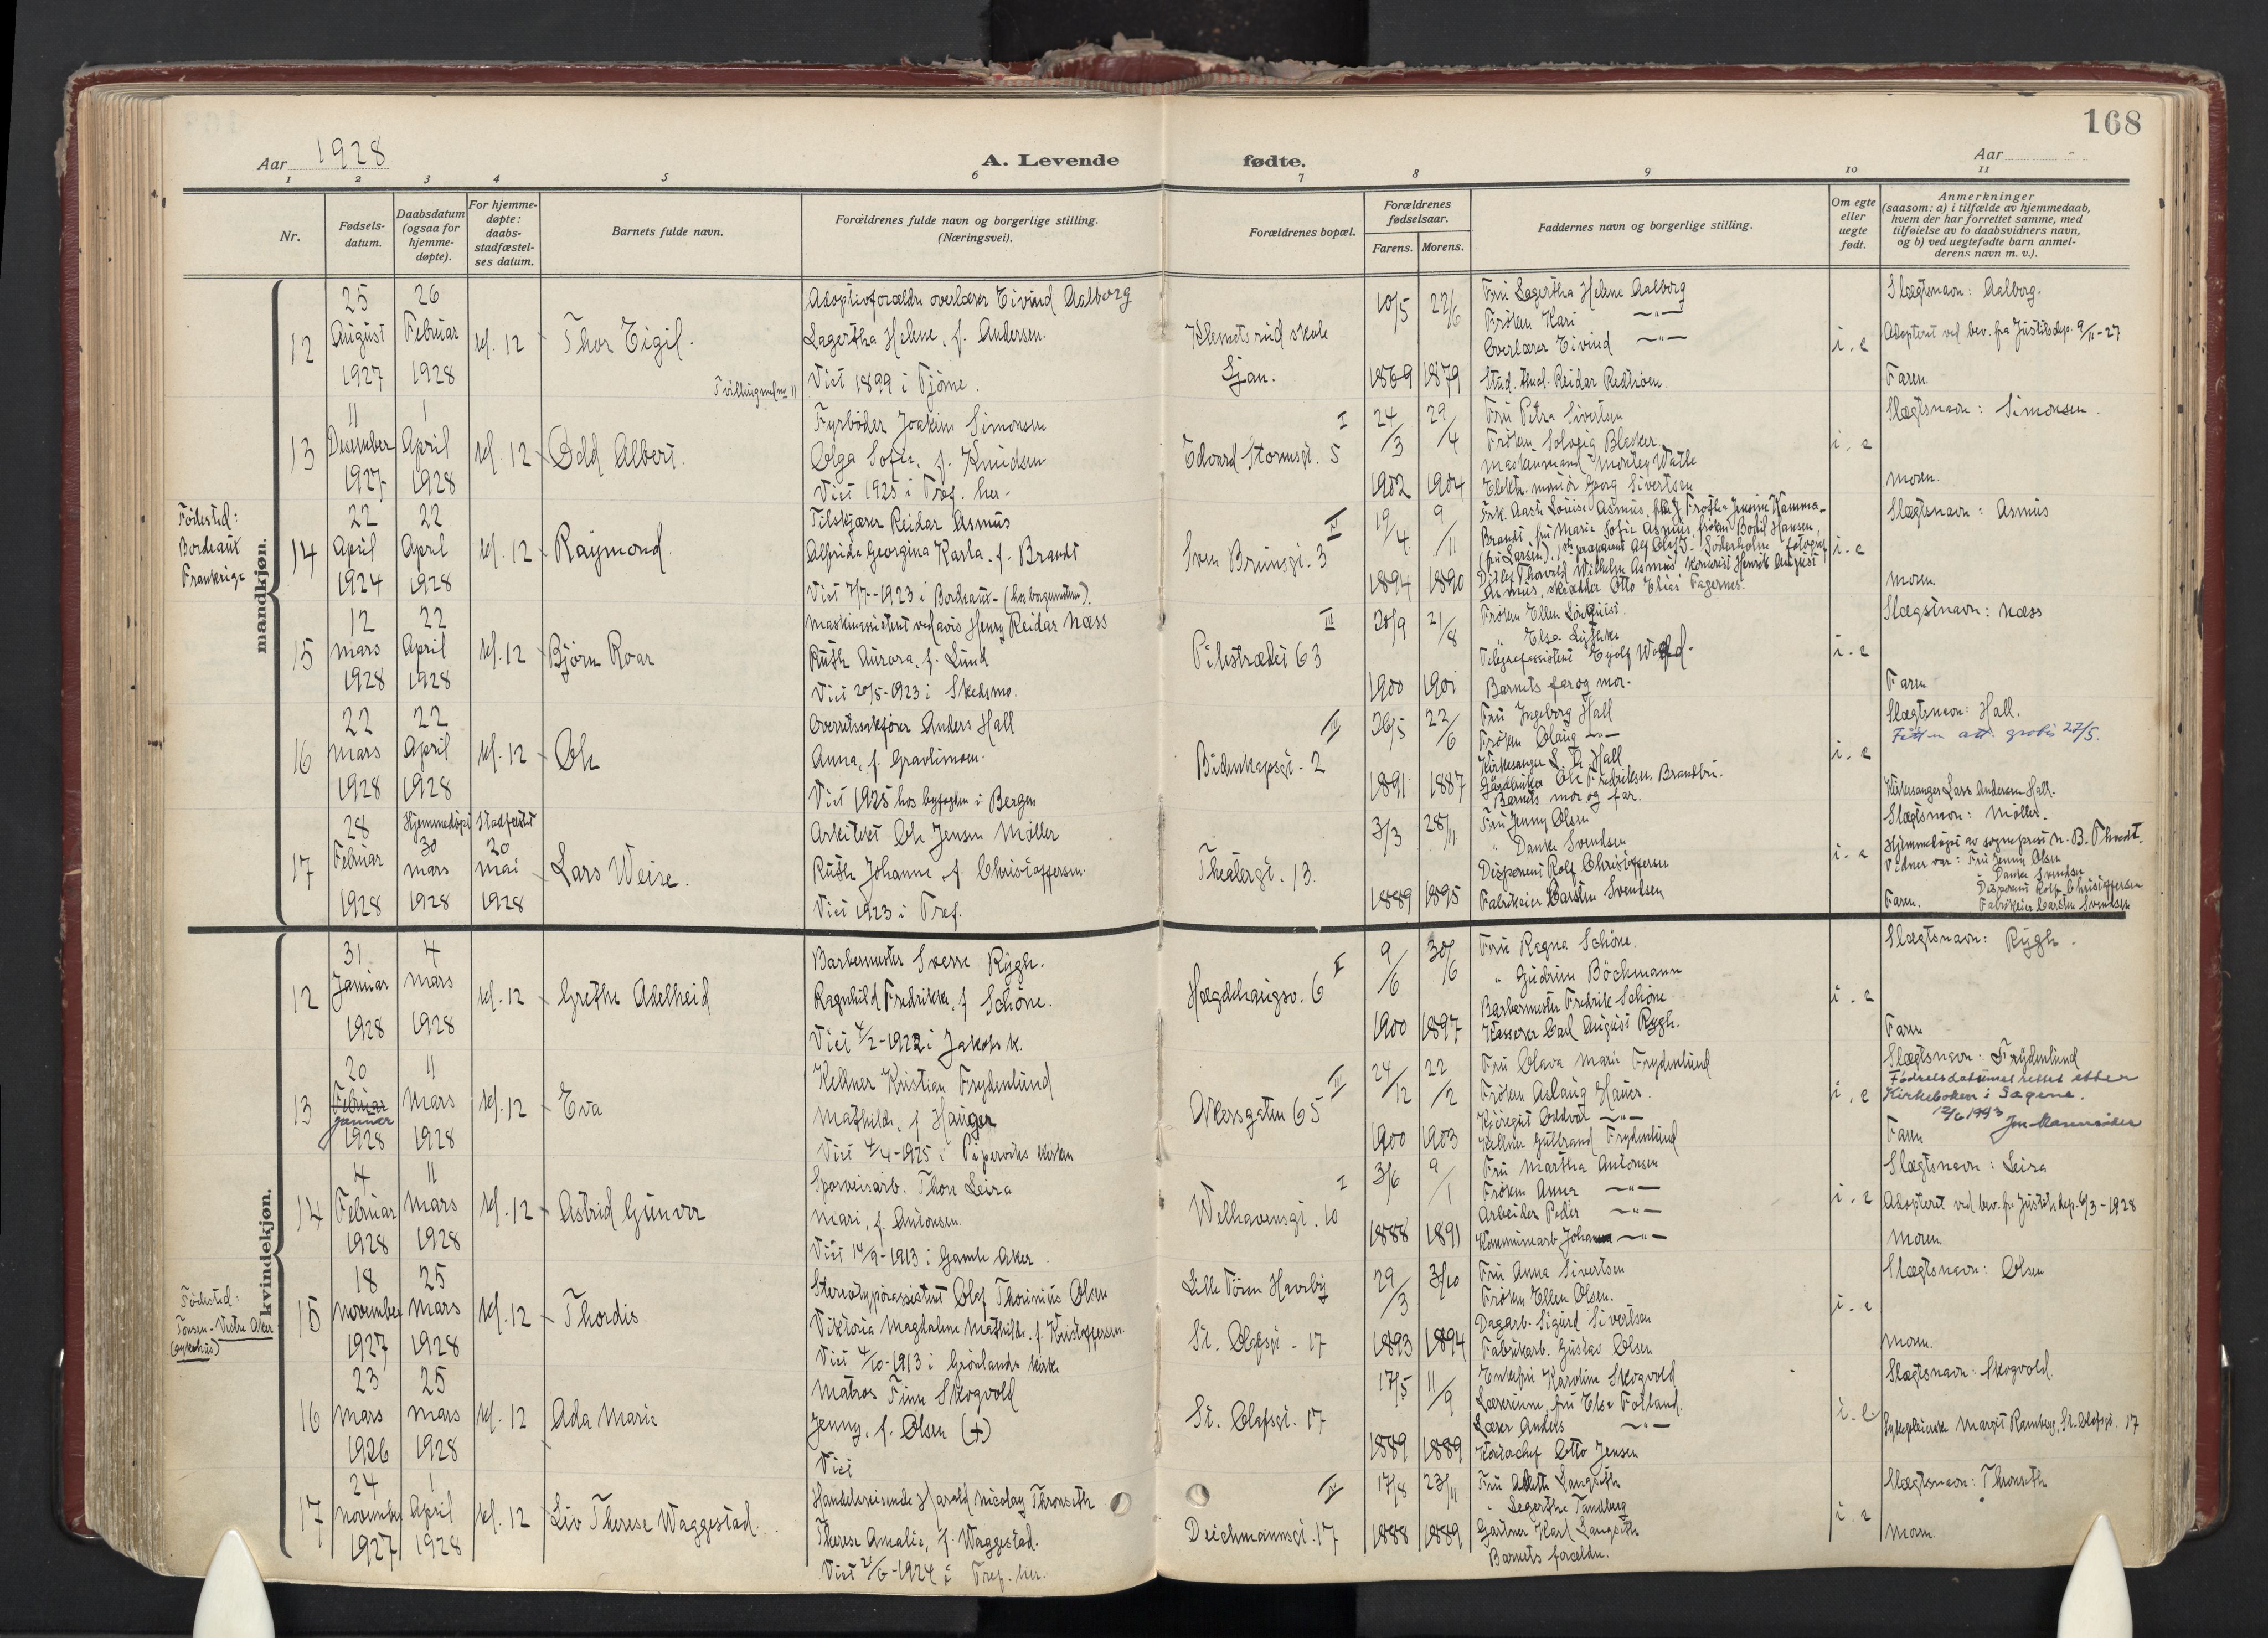 168
Aar 1928
A. Levende fødte.
Aar
1 2 3 4 5 6 7 8 9 10 11
Nr.
Fødsels-
datum.
Daabsdatum
(ogsaa for
hjemme-
døpte).
For hjemme-
døpte:
daabs-
stadfæstel-
ses datum.
Barnets fulde navn.
Forældrenes fulde navn og borgerlige stilling.
(Næringsvei).
Forældrenes bopæl.
Forældrenes
fødselsaar.
Farens. Morens.
Faddernes navn og borgerlige stilling.
Om egte
eller
uegte
født.
Anmerkninger
(saasom: a) i tilfælde av hjemmedaab,
hvem der har forrettet samme, med
tilføielse av to daabsvidners navn,
og b) ved uegtefødte barn anmel-
derens navn m. v.).
mandkjøn.
12
25
August
1927
26
Februar
1928
kl. 12
Thor Eigil.
Adoptivforældre overlærer Eivind Aalborg
Lagertha Helene, f. Andersen.
Viet 1899 i Tjöme.
Klemetsrud skole
Ljan.
10/5 1869
22/6 1879
Fru Lagertha Helene Aalborg
Fröken Kari —"—
Overlærer Eivind —"—
Stud. theol. Reidar
i. e
Slægtsnavn: Aalborg.
Adopteret ved bev. fra Justitsdep. 9/11-27
Faren
13
11
Desember
1927
1
April
1928
kl. 12
Odd Albert.
Tvillingmed nr 11
Fyrböder Joakim Simonsen
Olga Sofie, f. Knudsen
Viet 1925 i Tref. her.
I
Edvard Stormsgt. 5
24/3 1902
29/4 1904
Fru Petra Sivertsen
Fröken Solveig Blesker
Maskinmand Monley Watle
Elektr. montör Georg Sivertsen
i. e
Slægtsnavn: Simonsen.
moren.
Födested:
Bordeaux
Frankrige
14
22
April
1924
22
April
1928
kl. 12
Raymond.
Tilskjærer Reidar Asmus
Alfrida Georgina Karla, f. Brandt
Viet 7/7-1923 i Bordeaux (hos borgermesteren).
II
Sven Bruunsgt. 3
19/4 1894
9/11 1890
Frk. Aase Louise Asmus,
Brandt, fru Marie Sofie Asmus, fröken Bodil Hansen,
(fru Larsen), Söderholm fotograf
Ditlef Thorvald Wilhelm Asmus kontorist Henrik August
Asmus, skrædder Otto Elias Fagernes.
i. e
Slægtsnavn: Asmus
moren.
15
12
mars
1928
22
April
1928
kl. 12
Björn Roar
Maskinassistent ved avis Henry Reidar Næss
Ruth Aurora, f. Lund
Viet 20/5-1923 i Skedsmo.
III
Pilestrædet 63
20/9 1900
21/8 1901
Fröken Ellen
" Elsa
Telegrafassistent Eyolf
Barnets far og mor.
i. e
Slægtsnavn: Næss
Faren
16
22
mars
1928
22
April
1928
kl. 12
Ole
Overretssakförer Anders Hall
Anna, f. Gravlimoen.
Viet 1925 hos byfogden i Bergen
III
Bidenkapsgt. 2
26/5 1891
22/6 1887
Fru Ingeborg Hall
Fröken Olaug —"—
Kirkesanger L. A. Hall
Gaardbruker Ole Fredriksen Brandbu.
Barnets mor og far.
i. e
Slægtsnavn: Hall.
Fått en att. gratis 22/5.
Kirkesanger Lars Andersen Hall.
17
28
Februar
1928
Hjemmedöpt
30
mars
1928
Stadfæstet
20
mai
1928
Lars Weise.
Arkitekt Ole Jensen Möller
Ruth Johanne, f. Christoffersen.
Viet 1923 i Tref.
Theatergt. 13.
3/3 1889
28/11 1895
Fru Jenny Olsen
" Danke Svendsen
Disponent Rolf Christoffersen
Fabrikeier Carsten Svendsen
i. e
Slægtsnavn: Möller.
Hjemmedöpt av sogneprest N. B. Thvedt.
Vidner var: Fru Jenny Olsen
" Danke Svendsen
Disponent Rolf Christoffersen
Faren. Fabrikeier Carsten Svendsen
kvindekjøn.
12
31
Januar
1928
4
mars
1928
kl. 12
Grethe Adelheid
Barbermester Sverre Rygh.
Ragnhild Fredrikke, f Schöne.
Viet 4/2-1922 i Jakobs k.
II
Hægdehaugsv. 6
9/6 1900
30/6 1897
Fru Ragna Schöne.
" Gudrun Böchmann
Barbermester Fredrik Schöne
Kasserer Carl August Rygh.
i. e
Slægtsnavn: Rygh.
Faren
13
20
Februar
januar
1928
11
mars
1928
kl. 12
Eva
Kellner Kristian Frydenlund
Mathilde, f Hauger
Viet 4/4-1925 i Pipervikens kirken
III
Akersgaten 65
24/12 1900
22/2 1903
Fru Olava Marie Frydenlund
Fröken Aslaug Hauer.
Kjöregut Oddvar —"—
Kellner Gulbrand Frydenlund
i. e
Slægtsnavn: Frydenlund
Fødselsdatumet rettet etter
Kirkeboken i Sagene.
12/6 1993
Faren
14
4
Februar
1928
11
mars
1928
kl. 12
Astrid Gunvor
Sporveisarb. Thor Leira
Mari, f. Antonsen.
Viet 14/9-1913 i Gamle Aker
I
Welhavensgt. 10
3/6 1888
9/1 1891
Fru Martha Antonsen
Fröken Anna —"—
Arbeider Peder —"—
Kommunearb Johan —"—
i. e
Slægtsnavn: Leira
Adopteret ved bev. fra Justitsdep. 6/3-1928
Moren.
Födested:
Tonsen - Vestre Aker
(sykehus)
15
18
november
1927
25
mars
1928
kl. 12
Thordis
Stereotypörassistent Olaf Thorinius Olsen
Viktoria Magdalene Mathilde, f. Kristoffersen.
Viet 4/10-1913 i Grönlands kirke
Lille Tören Havreby
St. Olafsgt - 17
29/3 1893
3/10 1894
Fru Anna Sivertsen
Fröken Ellen Olsen.
Dagarb. Sigurd Sivertsen
Fabrikarb. Gustav Olsen
i. e
Slægtsnavn: Olsen
moren.
16
23
mars
1926
25
mars
1928
kl. 12
Ada Marie
Matros Finn Skogvold
Jenny, f. Olsen (+)
Viet
St. Olafsgt. 17
17/5 1889
11/9 1889
Enkefru Karoline Skogvold
Lærerinne, fru Else Folland.
Lærer Anders —"—
Kontorchef Otto Jensen
i. e
Slægtsnavn: Skogvold.
Sykepleierske Margit Ramberg, St. Olafsgt. 17
17
24
november
1927
1
April
1928
kl. 12
Liv Therese Waggestad.
Handelsreisende Harald Nicolay Thronseth
Therese Amalie, f. Waggestad.
Viet 21/6-1924 i Tref. her.
IV
Deichmannsgt. 17
17/8 1888
23/11 1889
Fru Langseth
" Lagertha Tandberg
Gartner Karl Langseth
Barnets forældre.
i. e
Slægtsnavn: Thronseth
Moren.